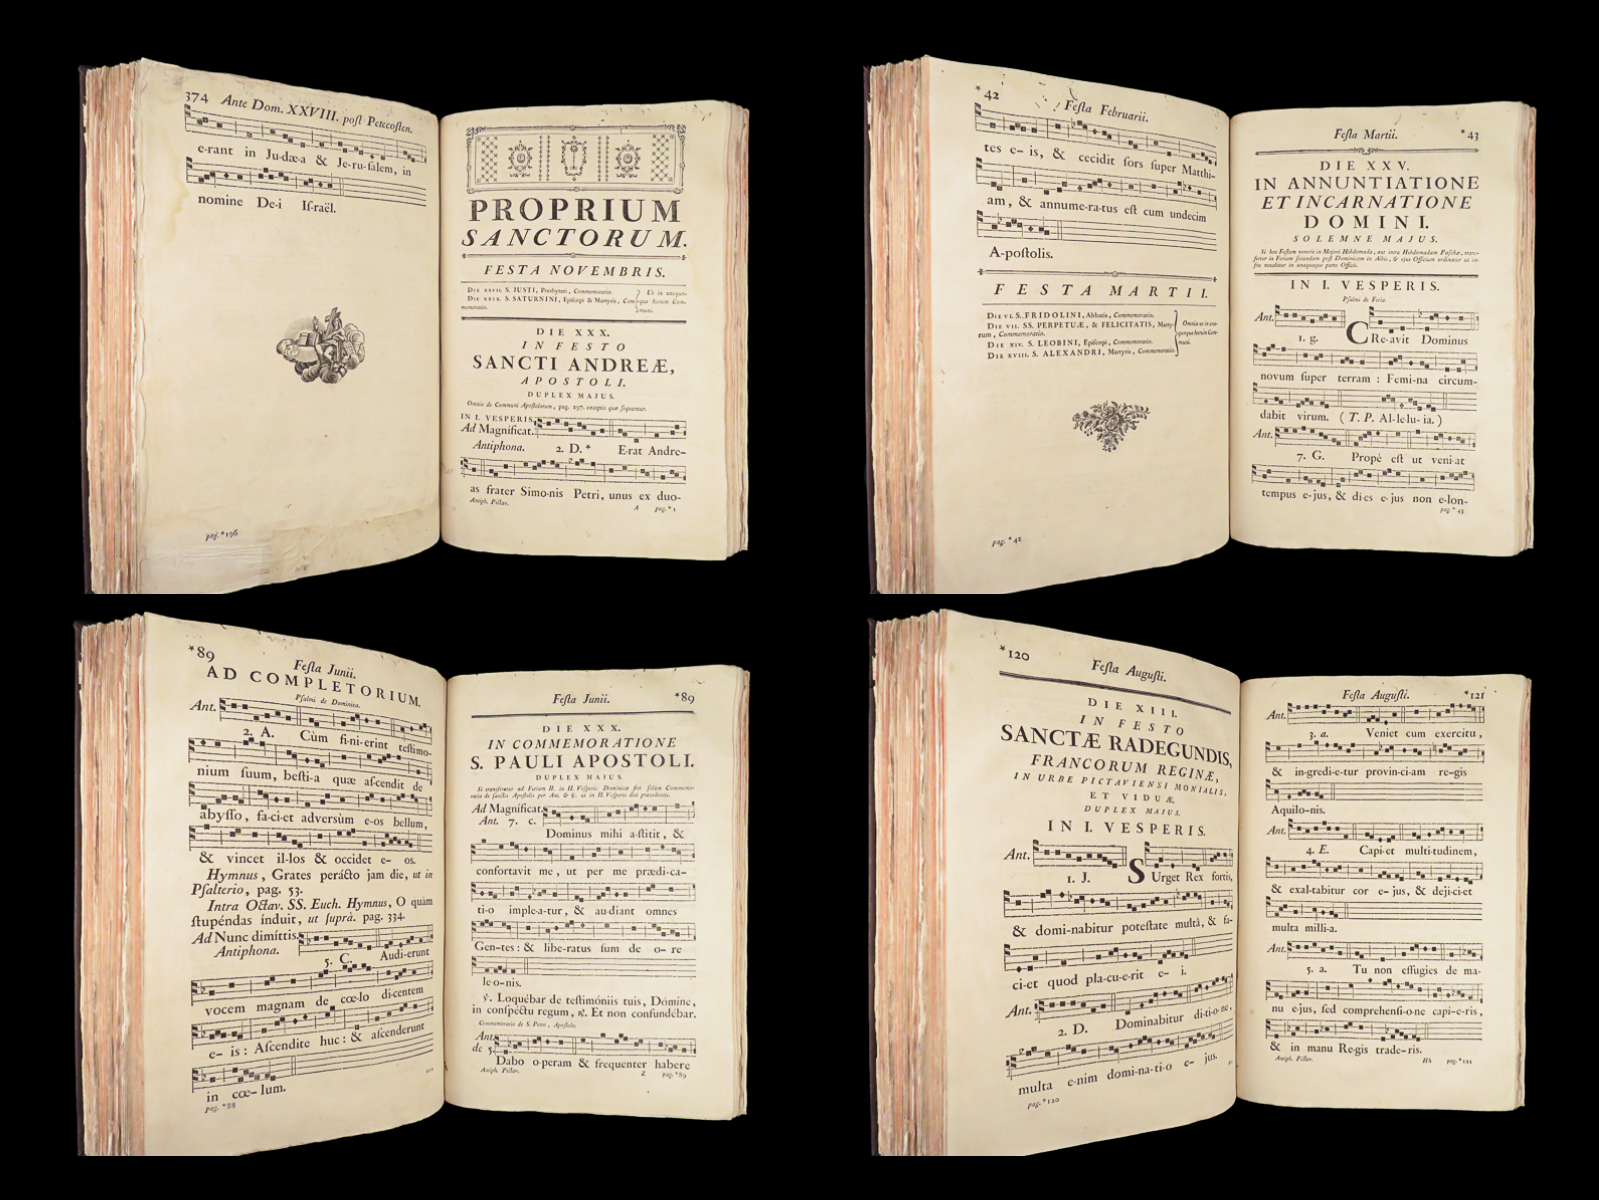 374 Ante Dom. XXVIII. poſt Pentecoſten.
e-rant in Ju-dæ-a & Je-ru-ſalem, in
nomine De-i Iſ-raël.
pag. *196
PROPRIUM
SANCTORUM.
FESTA NOVEMBRIS.
DIE XXVII. S. JUSTI, Presbyteri, Commemoratio.
DIE XXIX. S. SATURNINI, Epiſcopi & Martyris, Com-
memoratio.
Ut in uno-
que horum Com-
muni.
DIE XXX.
IN FESTO
SANCTI ANDREÆ,
APOSTOLI.
DUPLEX MAJUS.
Omnia de Communi Apoſtolorum, pag. 197. exceptis quæ ſequuntur.
IN I. VESPERIS,
Ad Magnificat.
Antiphona. 2. D. * E-rat Andre-
as frater Simo-nis Petri, unus ex duo-
Antiph. Pictav. A pag. *1
*42 Feſta Februarii.
tes e- is, & cecidit ſors ſuper Matthi-
am, & annume-ra-tus eſt cum undecim
A-poſtolis.
FESTA MARTII.
DIE VI. S. FRIDOLINI, Abbatis, Commemoratio.
DIE VII. SS. PERPETUÆ, & FELICITATIS, Marty-
rum, Commemoratio.
DIE XIV. S. LEOBINI, Epiſcopi, Commemoratio.
DIE XVIII. S. ALEXANDRI, Martyris, Commemoratio.
Omnia ut in
horum Com-
muni.
pag. *42
Feſta Martii. *43
DIE XXV.
IN ANNUNTIATIONE
ET INCARNATIONE
DOMINI.
SOLEMNE MAJUS.
Si hoc Feſtum venerit in Majori Hebdomada, aut intra Hebdomadam Paſchæ, tranſ-
fertur in Feriam ſecundam poſt Dominicam in Albis, & ejus Officium ordinatur ut in-
fra notabitur in unaquaque parte Officii.
IN I. VESPERIS.
Pſalmi de Feria.
Ant.
1. g. CRe-avit Dominus
novum ſuper terram : Femi-na circum-
dabit virum. ( T. P. Al-le-lu- ia. )
Ant.
7. G. Propè eſt ut veni-at
tempus e-jus, & di-es e-jus non e-lon-
pag. *43
*89 Feſta Junii.
AD COMPLETORIUM.
Pſalmi de Dominica.
Ant.
2. A. Cùm fi-ni-erint teſtimo-
nium ſuum, beſti-a quæ aſcendit de
abyſſo, fa-ci-et adversùm e-os bellum,
& vincet il-los & occidet e- os.
Hymnus, Grates perácto jam die, ut in
Pſalterio, pag. 53.
Intra Octav. SS. Euch. Hymnus, O quàm
ſtupéndas índuit, ut ſuprà. pag. 334.
Ad Nunc dimíttis.
Antiphona. 5. C. Audi-erunt
vocem magnam de cœ-lo di-centem
e- is : Aſcendite huc : & aſcenderunt
in cœ- lum.
pag. *88
Feſta Junii. *89
DIE XXX.
IN COMMEMORATIONE
S. PAULI APOSTOLI.
DUPLEX MAJUS.
Si transfertur ad Feriam II. in II. Veſperis Dominicæ fiet ſolùm Commemo-
ratio de ſancto Apoſtolo per Ant. & ℣. ut in II. Veſperis diei præcedentis.
Ad Magníficat.
Ant. 7. c.
Dominus mihi a-ſtitit, &
confortavit me, ut per me prædi-ca-
ti-o imple-a-tur, & au-diant omnes
Gen-tes : & libe-ratus ſum de o- re
le-o-nis.
℣. Loquébar de teſtimóniis tuis, Dómine,
in conſpéctu regum, ℟. Et non confundébar.
Commemoratio de S. Petro, Apoſtolo.
Ant.
de 5.
Dabo o-peram & frequenter habere
Antiph. Pictav. Z pag. *89
*120 Feſta Auguſti.
DIE XIII.
IN FESTO
SANCTÆ RADEGUNDIS,
FRANCORUM REGINÆ,
IN URBE PICTAVIENSI MONIALIS,
ET VIDUÆ.
DUPLEX MAJUS.
IN I. VESPERIS.
Ant.
1. J. SUrget Rex fortis,
& domi-nabitur poteſtate multâ, & fa-
ci-et quod pla-cu-e-rit e- i.
Ant.
2. D. Dominabitur di-ti-o-ne,
multa e-nim domi-na-ti-o e- jus.
pag. *120
Feſta Auguſti. *121
Ant.
3. a. Veniet cum exercitu,
& in-gredi-e-tur provin-ci-am re-gis
Aquilo-nis.
Ant.
4. E. Capi-et multi-tudinem,
& exal-tabitur cor e- jus, & deji-ci-et
multa milli-a.
Ant.
5. a. Tu non effugies de ma-
nu e-jus, ſed comprehenſi-o-ne capi-e-ris,
& in manu Re-gis trade-ris.
Antiph. Pictav. Hh pag. *121